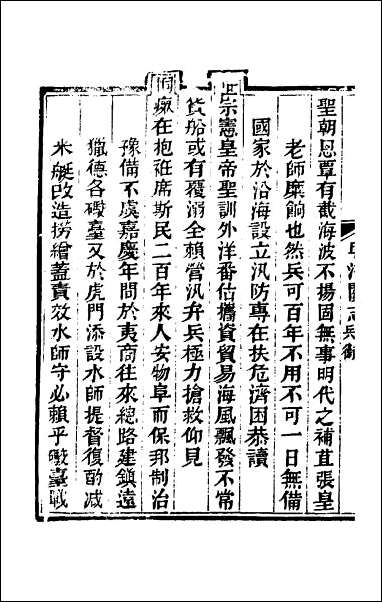 聖朝恩覃有截海波不揚固無事明代之補苴張皇
老師糜餉也然兵可百年不用不可一日無備
國家於沿海設立汛防專在扶危濟困恭讀
世宗憲皇帝聖訓外洋番估攜資貿易海風飄發不常
貨船或有覆溺全賴營汛弁兵極力搶救仰見
恫瘝在抱袵席斯民二百年來人安物阜而保邦制治
豫備不虞嘉慶年間於夷商往來總路建鎮遠
獵德各礮臺又於虎門添設水師提督復酌减
米艇改造撈繒蓋責效水師守必賴乎礮臺戰